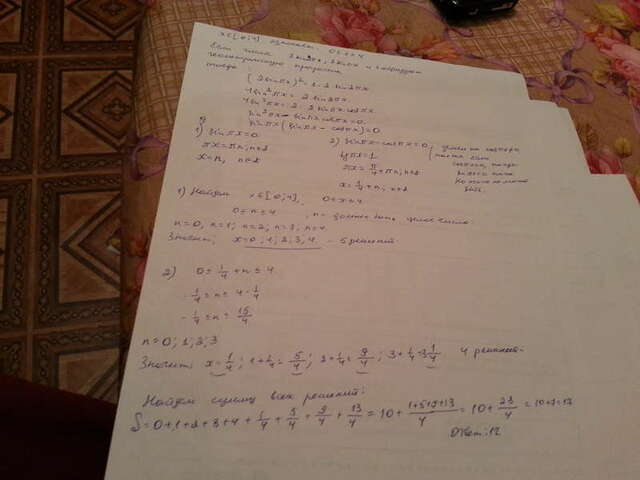 x∈[0;4] означает 0≤x≤4
Если числа 2sin2πx, 2sinπx и 1 образуют
геометрическую прогрессию
тогда
(2sinπx)² = 1·2sin2πx
4sin²πx = 2·sin2πx
4sin²πx = 2·2·sinπx cosπx
sin²πx - sinπx cosπx = 0
sinπx(sinπx - cosπx) = 0
1) sinπx = 0
πx = πn, n∈z
x = n, n∈z
2) sinπx - cosπx = 0
tgπx = 1
πx = π/4 + πn, n∈z
x = 1/4 + n, n∈z
делим на
1) Найдем x∈[0;4], 0≤x≤4
0≤n≤4, n - целое число
n=0, n=1; n=2; n=3; n=4
Значит, x=0; 1; 2; 3, 4. - 5 решений
2) 0 ≤ 1/4 + n ≤ 4
-1/4 ≤ n ≤ 4-1/4
-1/4 ≤ n ≤ 15/4
n=0; 1; 2; 3
Значит: x = 1/4; 1+1/4 = 5/4; 2+1/4 = 9/4; 3+1/4 = 3 1/4 4 решения
Найдем сумму всех решений:
S = 0+1+2+3+4+1/4+5/4+9/4+13/4 = 10 + (1+5+9+13)/4 = 10 + 23/4 = 10+7=17
Ответ: 17